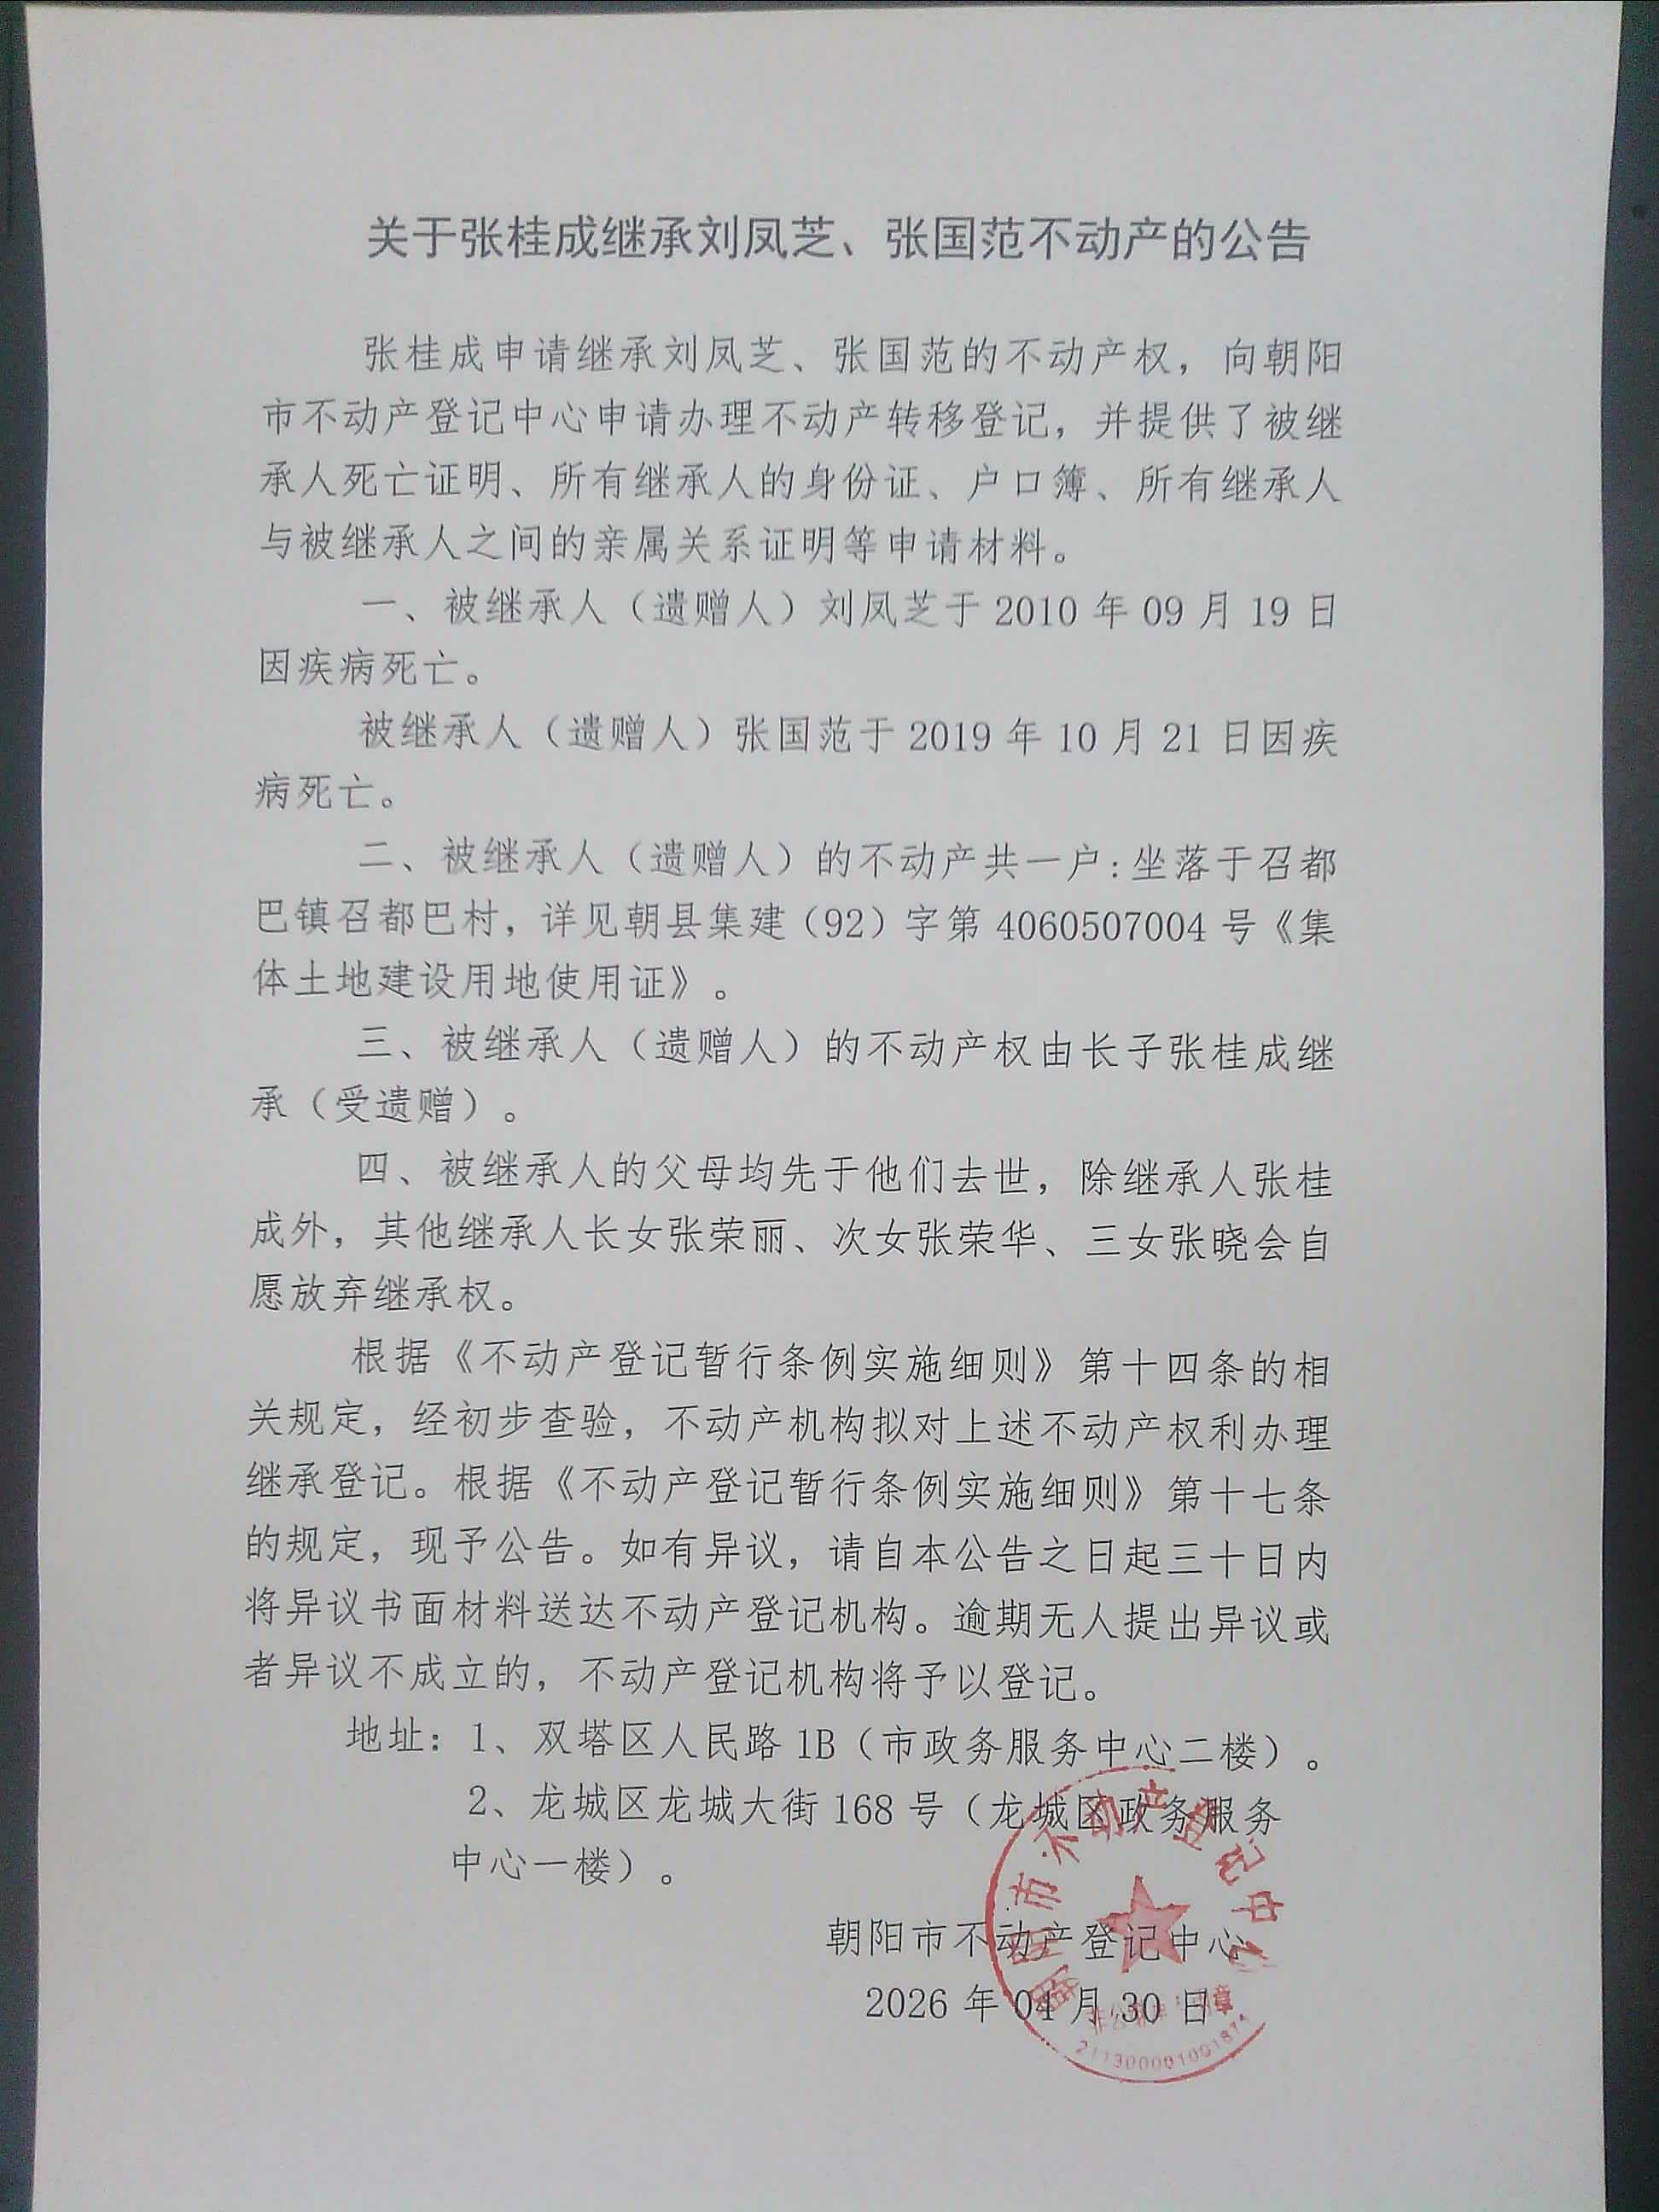 关于张桂成继承刘凤芝、张国范不动产的公告
张桂成申请继承刘凤芝、张国范的不动产权，向朝阳
市不动产登记中心申请办理不动产转移登记，并提供了被继
承人死亡证明、所有继承人的身份证、户口簿、所有继承人
与被继承人之间的亲属关系证明等申请材料。
一、被继承人（遗赠人）刘凤芝于 2010 年 09 月 19 日
因疾病死亡。
被继承人（遗赠人）张国范于 2019 年 10 月 21 日因疾
病死亡。
二、被继承人（遗赠人）的不动产共一户:坐落于召都
巴镇召都巴村，详见朝县集建（92）字第 4060507004 号《集
体土地建设用地使用证》。
三、被继承人（遗赠人）的不动产权由长子张桂成继
承（受遗赠）。
四、被继承人的父母均先于他们去世，除继承人张桂
成外，其他继承人长女张荣丽、次女张荣华、三女张晓会自
愿放弃继承权。
根据《不动产登记暂行条例实施细则》第十四条的相
关规定，经初步查验，不动产机构拟对上述不动产权利办理
继承登记。根据《不动产登记暂行条例实施细则》第十七条
的规定，现予公告。如有异议，请自本公告之日起三十日内
将异议书面材料送达不动产登记机构。逾期无人提出异议或
者异议不成立的，不动产登记机构将予以登记。
地址：1、双塔区人民路 1B（市政务服务中心二楼）。
2、龙城区龙城大街 168 号（龙城区政务服务
中心一楼）。
朝阳市不动产登记中心
2026 年 04 月 30 日
朝阳市不动产登记中心